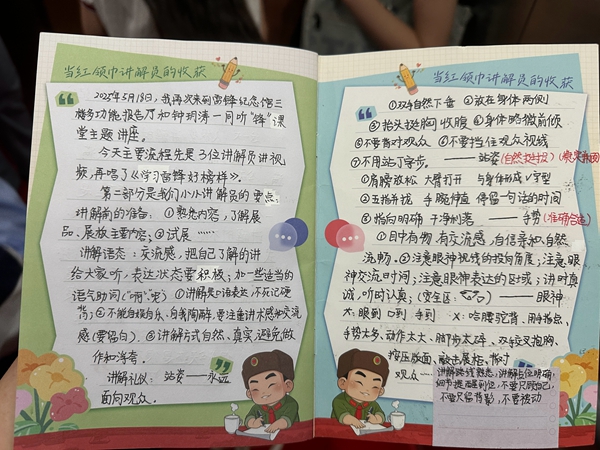 当红领巾讲解员的收获
2025年5月18日,我再次来到雷锋纪念馆三
楼多功能报告厅和钟玥涛一同听“锋”课
堂主题讲座。
今天主要流程先是3位讲解员讲视
频,再唱了《学习雷锋好榜样》。
第二部分是我们小小讲解员的要点
讲解前的准备:①熟悉内容,了解展
品、展放主要内容;②试展……
讲解语态:交流感,把自己了解的讲
给大家听,表达状态要积极;加一些适当的
语气助词(“啊”“吧”)①讲解是口语表达,不死记硬
背;②不能自娱自乐、自我陶醉,要注重讲术感和交流
感(要留白)。③讲解方式自然、真实,避免做
作和洋夸。
讲解礼仪:站姿——永远
面向观众。
当红领巾讲解员的收获
①双手自然下垂 ②放在身体两侧
③抬头挺胸收腹 ④身体略微前倾
⑤不要背对观众 ⑥不要挡住观众视线
⑦不用站丁字步。——站姿(自然挺拔)
①肩膀放松 大臂打开 与身体成V字型
②五指并拢 手腕伸直 停留一句话的时间
③指向明确 干净利落 ——手势(准确合适)
①目中有物,有交流感,自信亲和,自然
流畅。②注意眼神视线的投向角度;注意眼
神交流时间;注意眼神表达的区域;讲时真
诚,听时认真;——眼神
大:眼到 口到 手到 X:哈腰驼背,用手指点,
手势太多、动作太大、脚步太碎、双臂叉抱胸、
按压版面、敲击展柜、背对
观众……
讲解路线熟悉,讲解占位明确,
细节提醒到位,不要只顾自己,
不要只留背影,不要被动